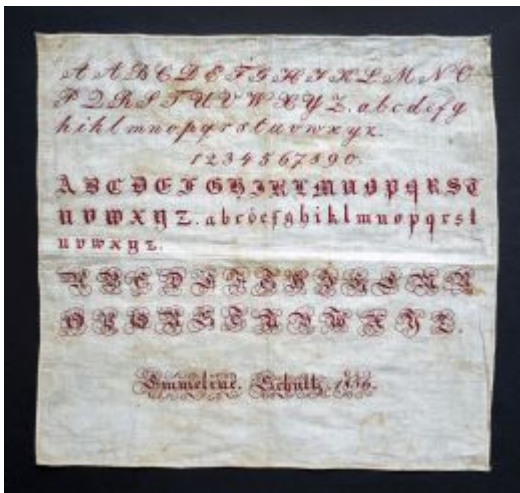 A A B C D E F G H I K L M N O
P Q R S T U V W X Y Z. a b c d e f g
h i k l m n o p q r s t u v w x y z.
1 2 3 4 5 6 7 8 9 0.
A B C D E F G H I K L M N O P Q R S T
U V W X Y Z. a b c d e f g h i k l m n o p q r s t
u v w x y z.
A B C D E F G H I K L M N
O P Q R S T U V W X Y Z.
Emmeline. Schultz.